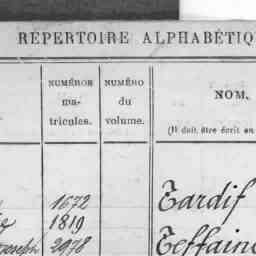 RÉPERTOIRE ALPHABÉTIQ
NUMÉROS
ma-
tricules.
NUMÉRO
du
volume.
NOM,
(Il doit être écrit en
1672 Tardif
1819
2978 Teffain